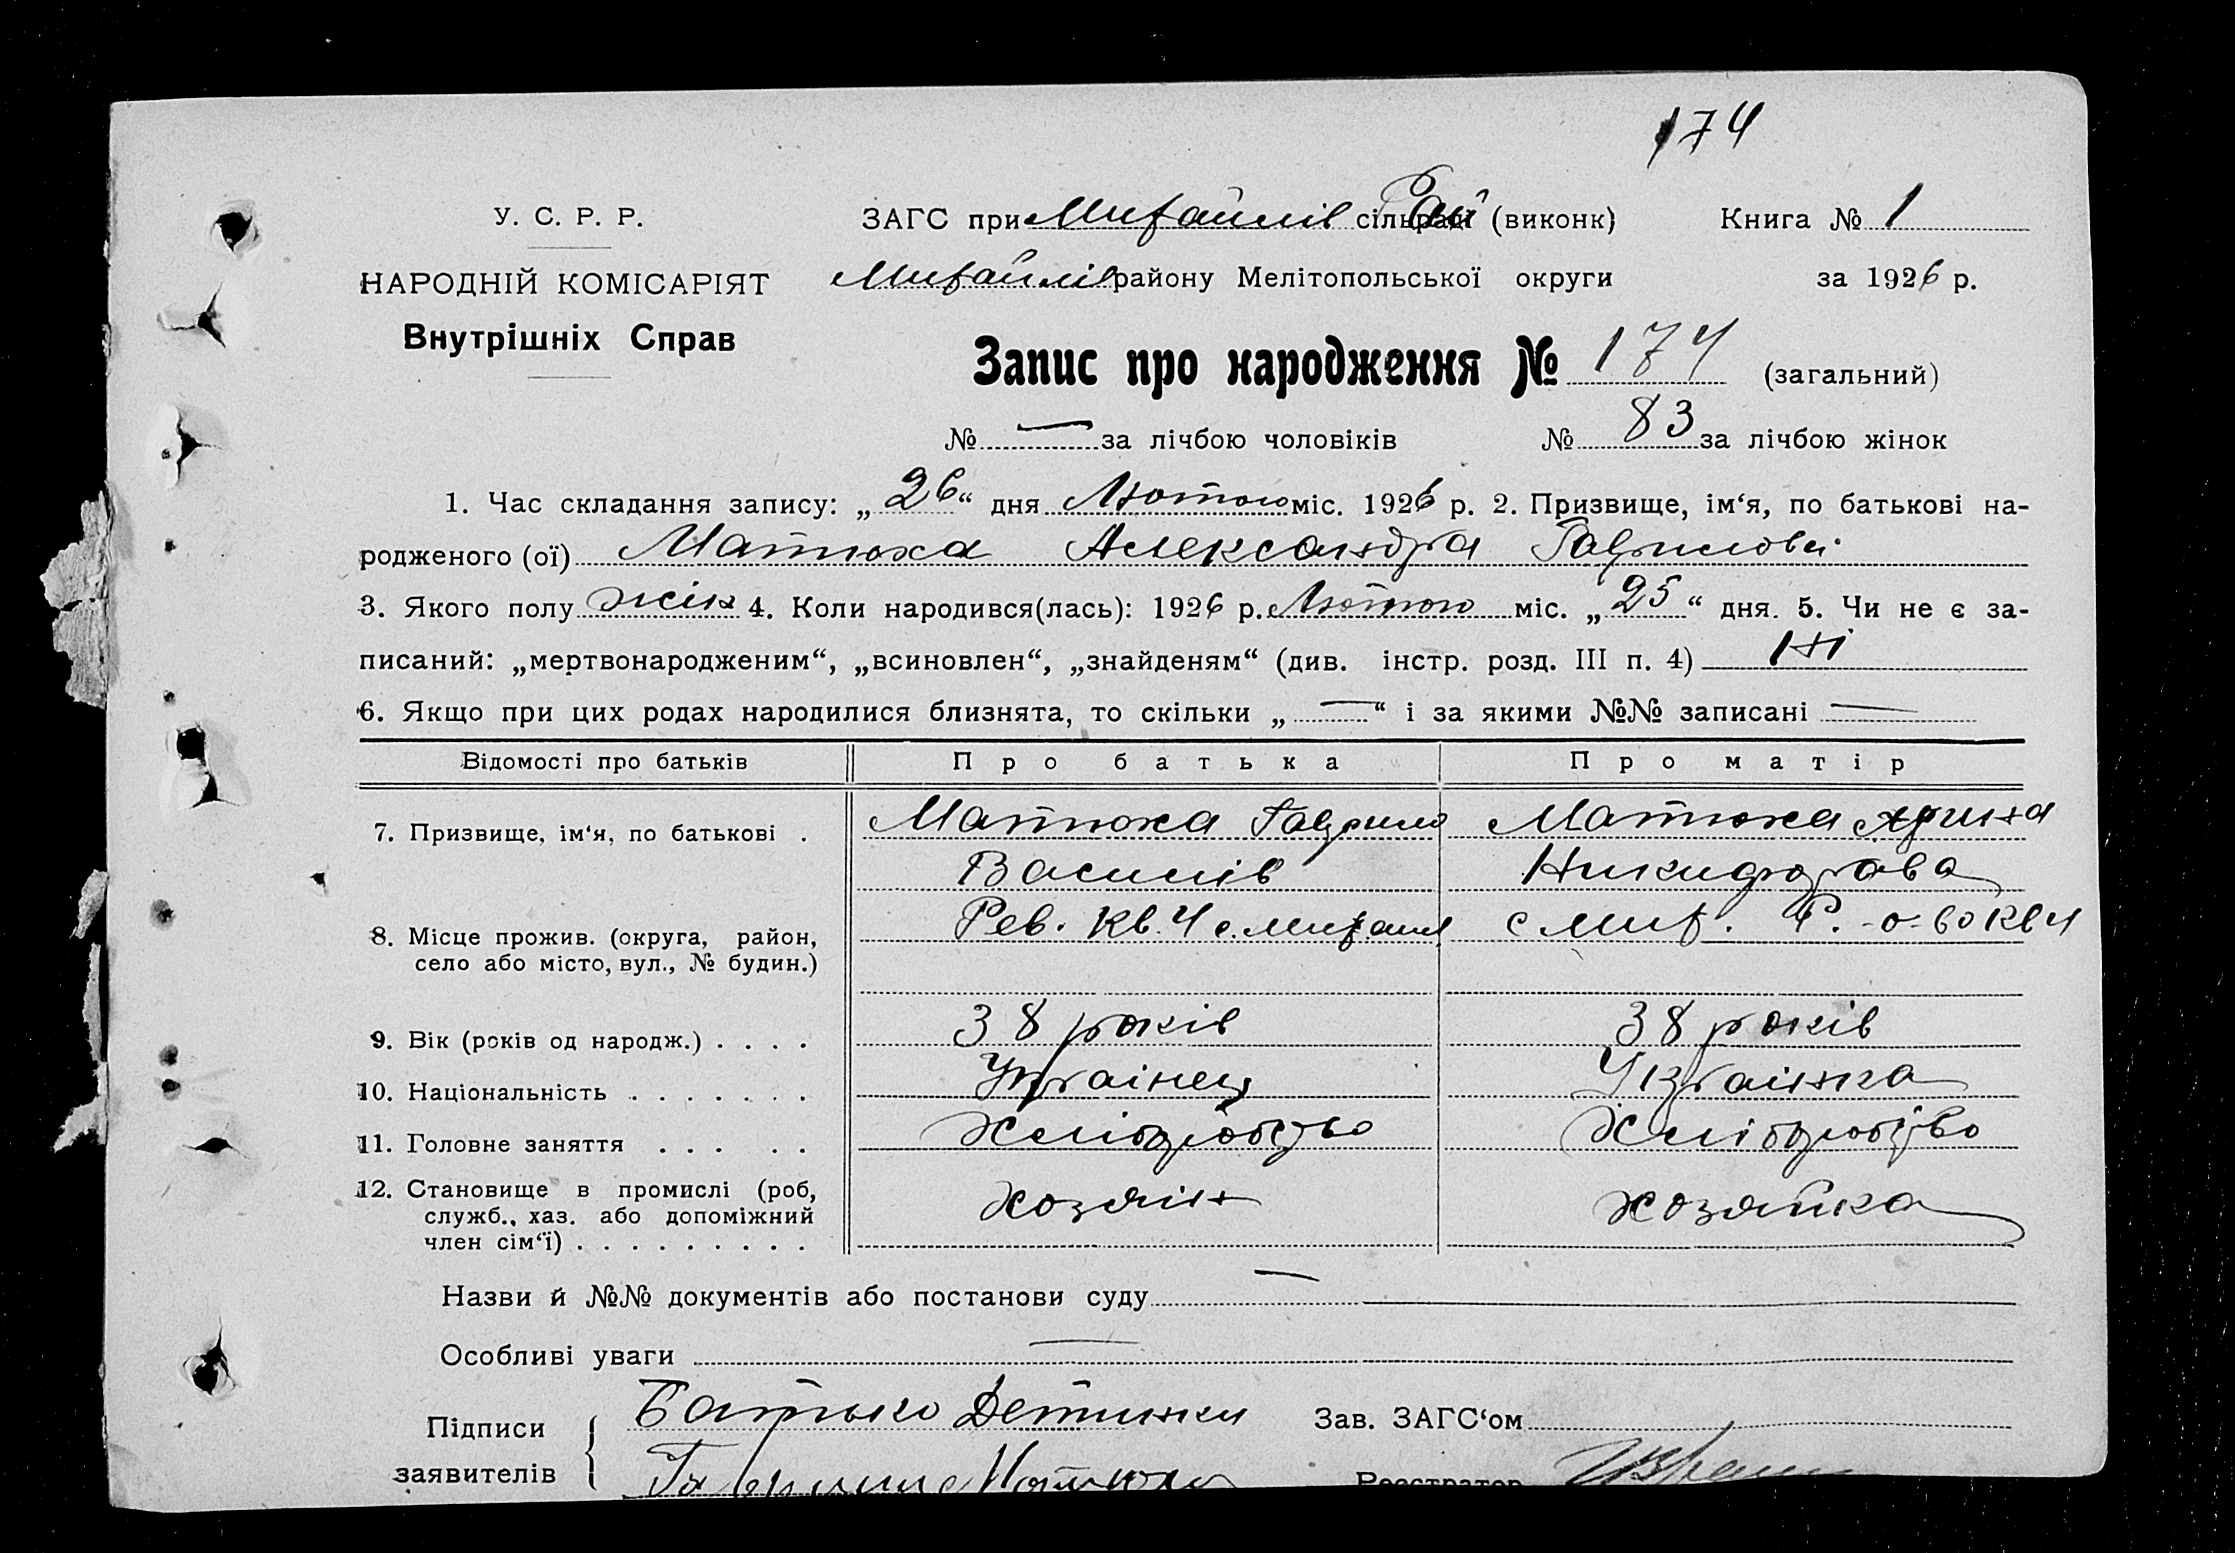 174
У. С. Р. Р.
ЗАГС при Михайлів сільраді Рай (виконк) Книга № 1
НАРОДНІЙ КОМІСАРІЯТ
Михайлів району Мелітопольської округи за 1926 р.
Внутрішніх Справ
Запис про народження № 174 (загальний)
№ — за лічбою чоловіків № 83 за лічбою жінок
1. Час складання запису: „26“ дня Лютого міс. 1926 р. 2. Призвище, ім‘я, по батькові на-
родженого (ої) Матюха Александра Гаврилова
3. Якого полу жін 4. Коли народився(лась): 1926 р. Лютого міс. „25“ дня. 5. Чи не є за-
писаний: „мертвонародженим“, „всиновлен“, „знайденям“ (див. інстр. розд. III п. 4) Ні
6. Якщо при цих родах народилися близнята, то скільки „—“ і за якими №№ записані —
Відомості про батьків Про батька Про матір
7. Призвище, ім‘я, по батькові . Матюха Гаврило Матюха Ярина
Василів Никифорова
8. Місце прожив. (округа, район, Рев. Кв. 4 с. Михайл с Мих. Р.-о-во Кв 4
село або місто, вул., № будин.)
9. Вік (років од народж.) . . . . 38 років 38 років
10. Національність . . . . . . . Українец Українка
11. Головне заняття . . . . . Хліборобство Хліборобство
12. Становище в промислі (роб, хозяін хозяйка
служб., хаз. або допоміжний
член сім‘ї) . . . . . . . . .
Назви й №№ документів або постанови суду —
Особливі уваги —
Підписи Батько Детинки Зав. ЗАГС‘ом
заявителів Гаврило Матюха Реєстратор